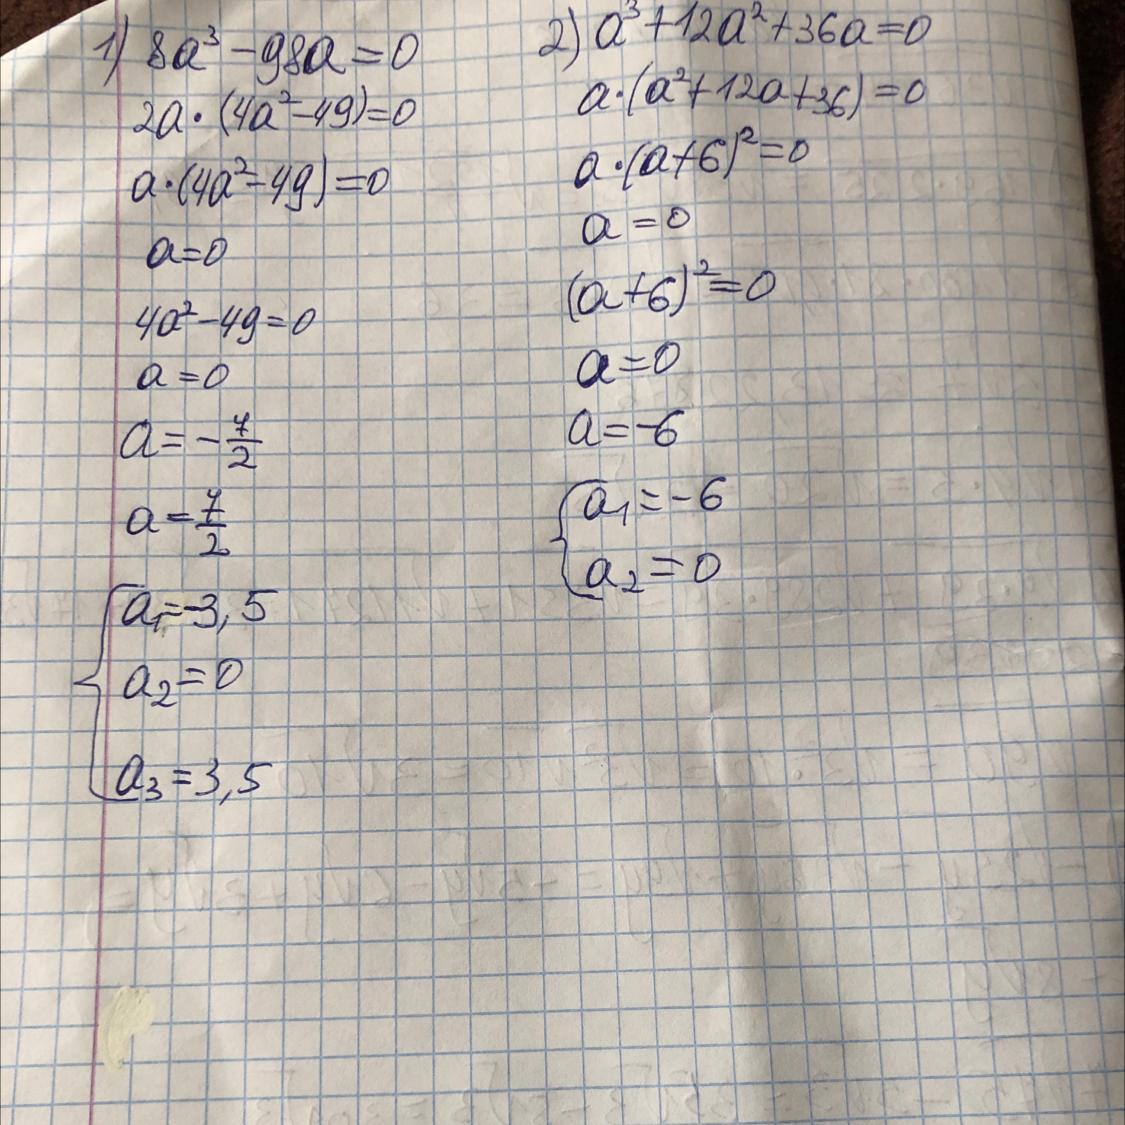 1) 8a³ - 98a = 0
2a · (4a² - 49) = 0
a · (4a² - 49) = 0
a = 0
4a² - 49 = 0
a = 0
a = - 7/2
a = 7/2
a₁ = -3,5
a₂ = 0
a₃ = 3,5
2) a³ + 12a² + 36a = 0
a · (a² + 12a + 36) = 0
a · (a + 6)² = 0
a = 0
(a + 6)² = 0
a = 0
a = -6
a₁ = -6
a₂ = 0